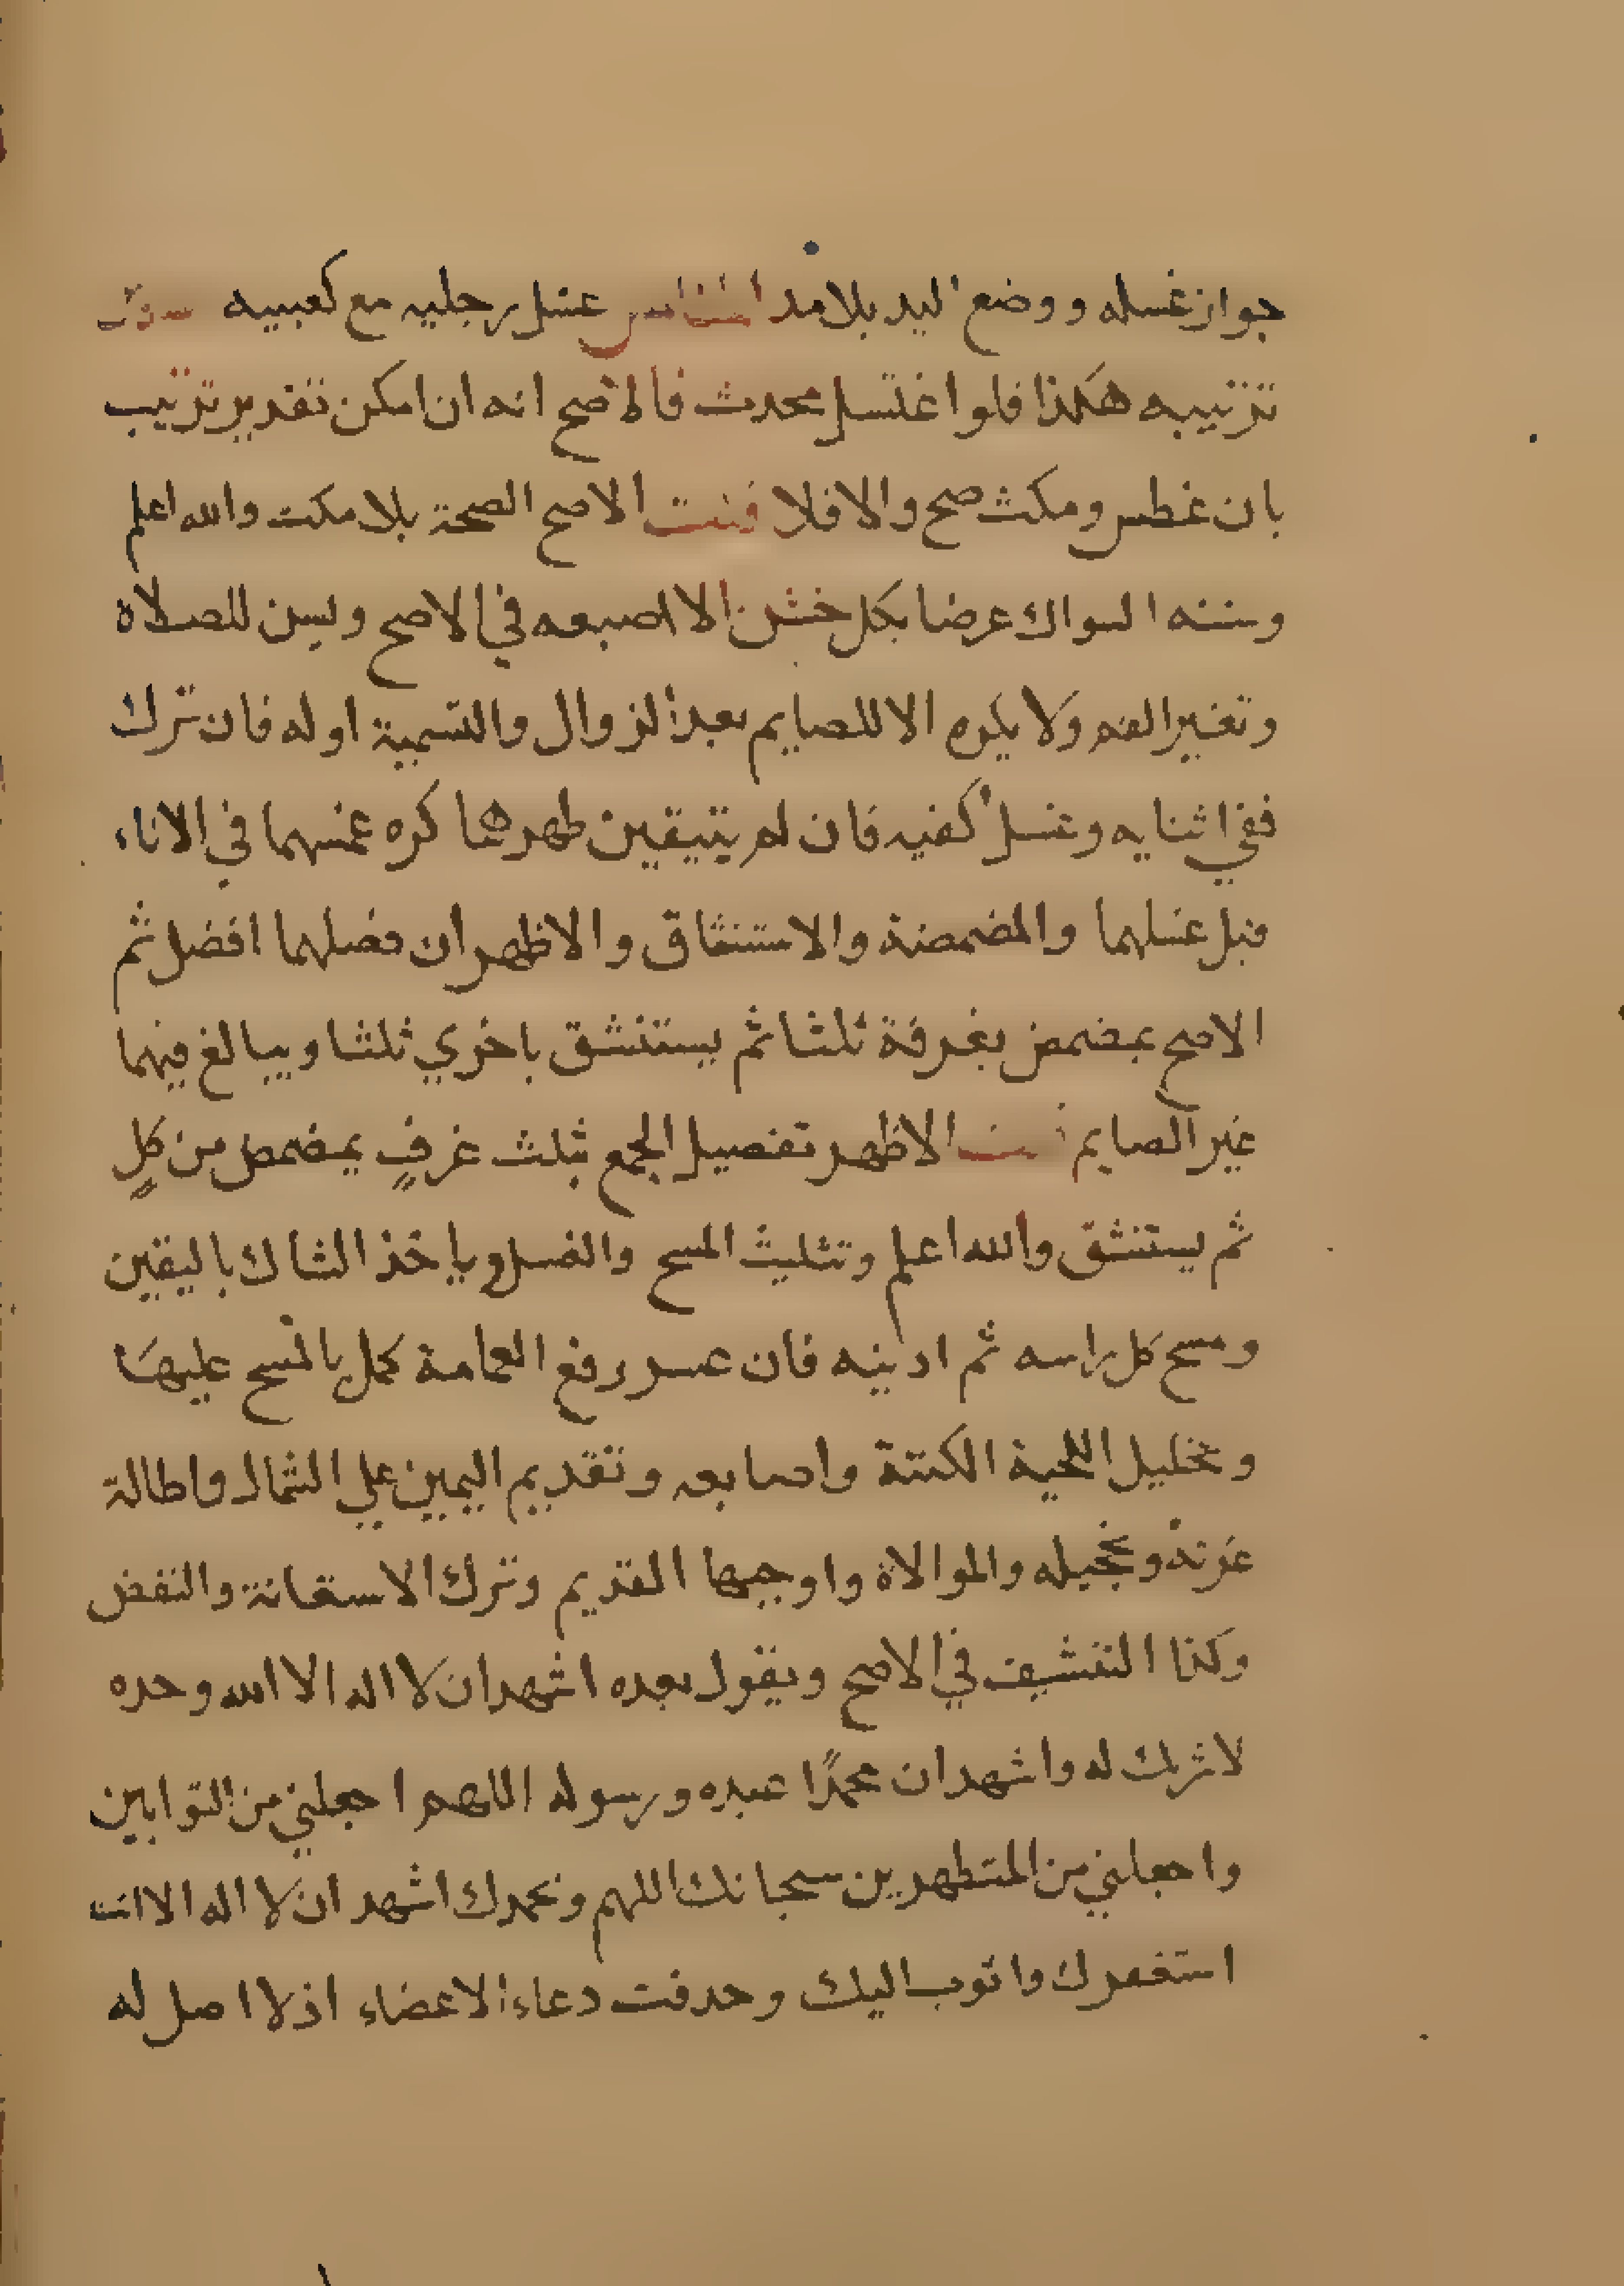 جواز غسله ووضع اليد بلا مد الخامس غسل رجليه مع كعبيه
ترتيبه هكذا فلو اغتسل محدث فالاصح انه ان امكن تقدير ترتيب
بان غطس ومكث صح والا فلا قلت الاصح الصحة بلا مكث والله اعلم
وسننه السواك عرضا بكل خشن الا اصبعه في الاصح ويسن للصلاة
وتغير الفم ولا يكره الا للصايم بعد الزوال والتسمية اوله فان ترك
ففي اثنايه وغسل كفيه فان لم يتيقن طهرهما كره غمسهما في الاناء
قبل غسلهما والمضمضة والاستنشاق والاظهر ان فصلهما افضل ثم
الاصح يمضمض بغرفة ثلثا ثم يستنشق باخري ثلثا ويبالغ فيهما
غير الصايم قلت الاظهر تفضيل الجمع بثلث غرفٍ يمضمض من كلٍ
ثم يستنشق والله اعلم وتثليث المسح والغسل وياخذ الشاك باليقين
ومسح كل راسه ثم اذنيه فان عسر رفع العمامة كمل بالمسح عليها
وتخليل اللحية الكثة واصابعه وتقديم اليمين علي الشمال واطالة
غرته وتحجيله والموالاة واوجبها القديم وترك الاستعانة والنفض
وكذا التنشيف في الاصح ويقول بعده اشهد ان لا اله الا الله وحده
لا شريك له واشهد ان محمدًا عبده ورسوله اللهم اجعلني من التوابين
واجعلني من المتطهرين سبحانك اللهم وبحمدك اشهد ان لا اله الا انت
استغفرك واتوب اليك وحذفت دعاء الاعضاء اذ لا اصل له